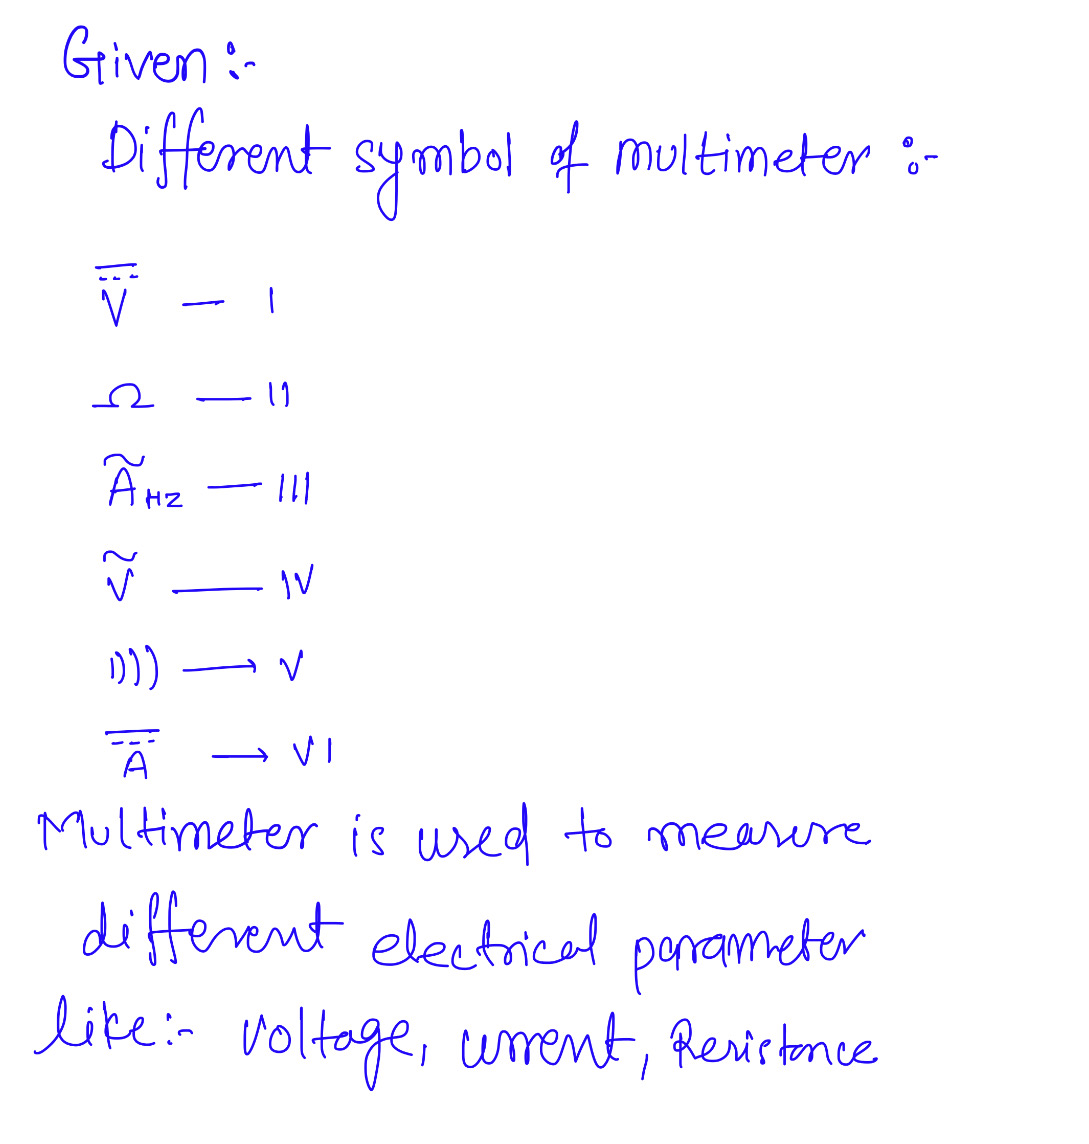 Given :-
Different symbol of multimeter :-
V̅ — I
Ω — II
Ã HZ — III
Ṽ — IV
)))) → V
A̅ → VI
Multimeter is used to measure
different electrical parameter
like :- Voltage, current, Resistance